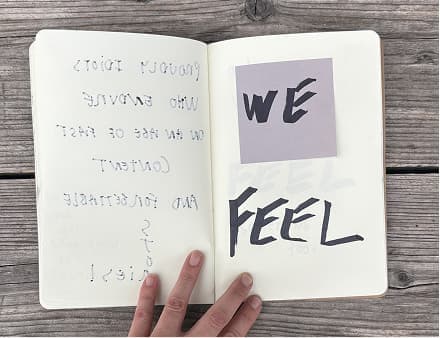 PROUDLY IDIOTS
WHO ENDURE
AN AGE OF FAST
CONTENT
AND FORGETTABLE
S
T
O
RIES!
WE
FEEL